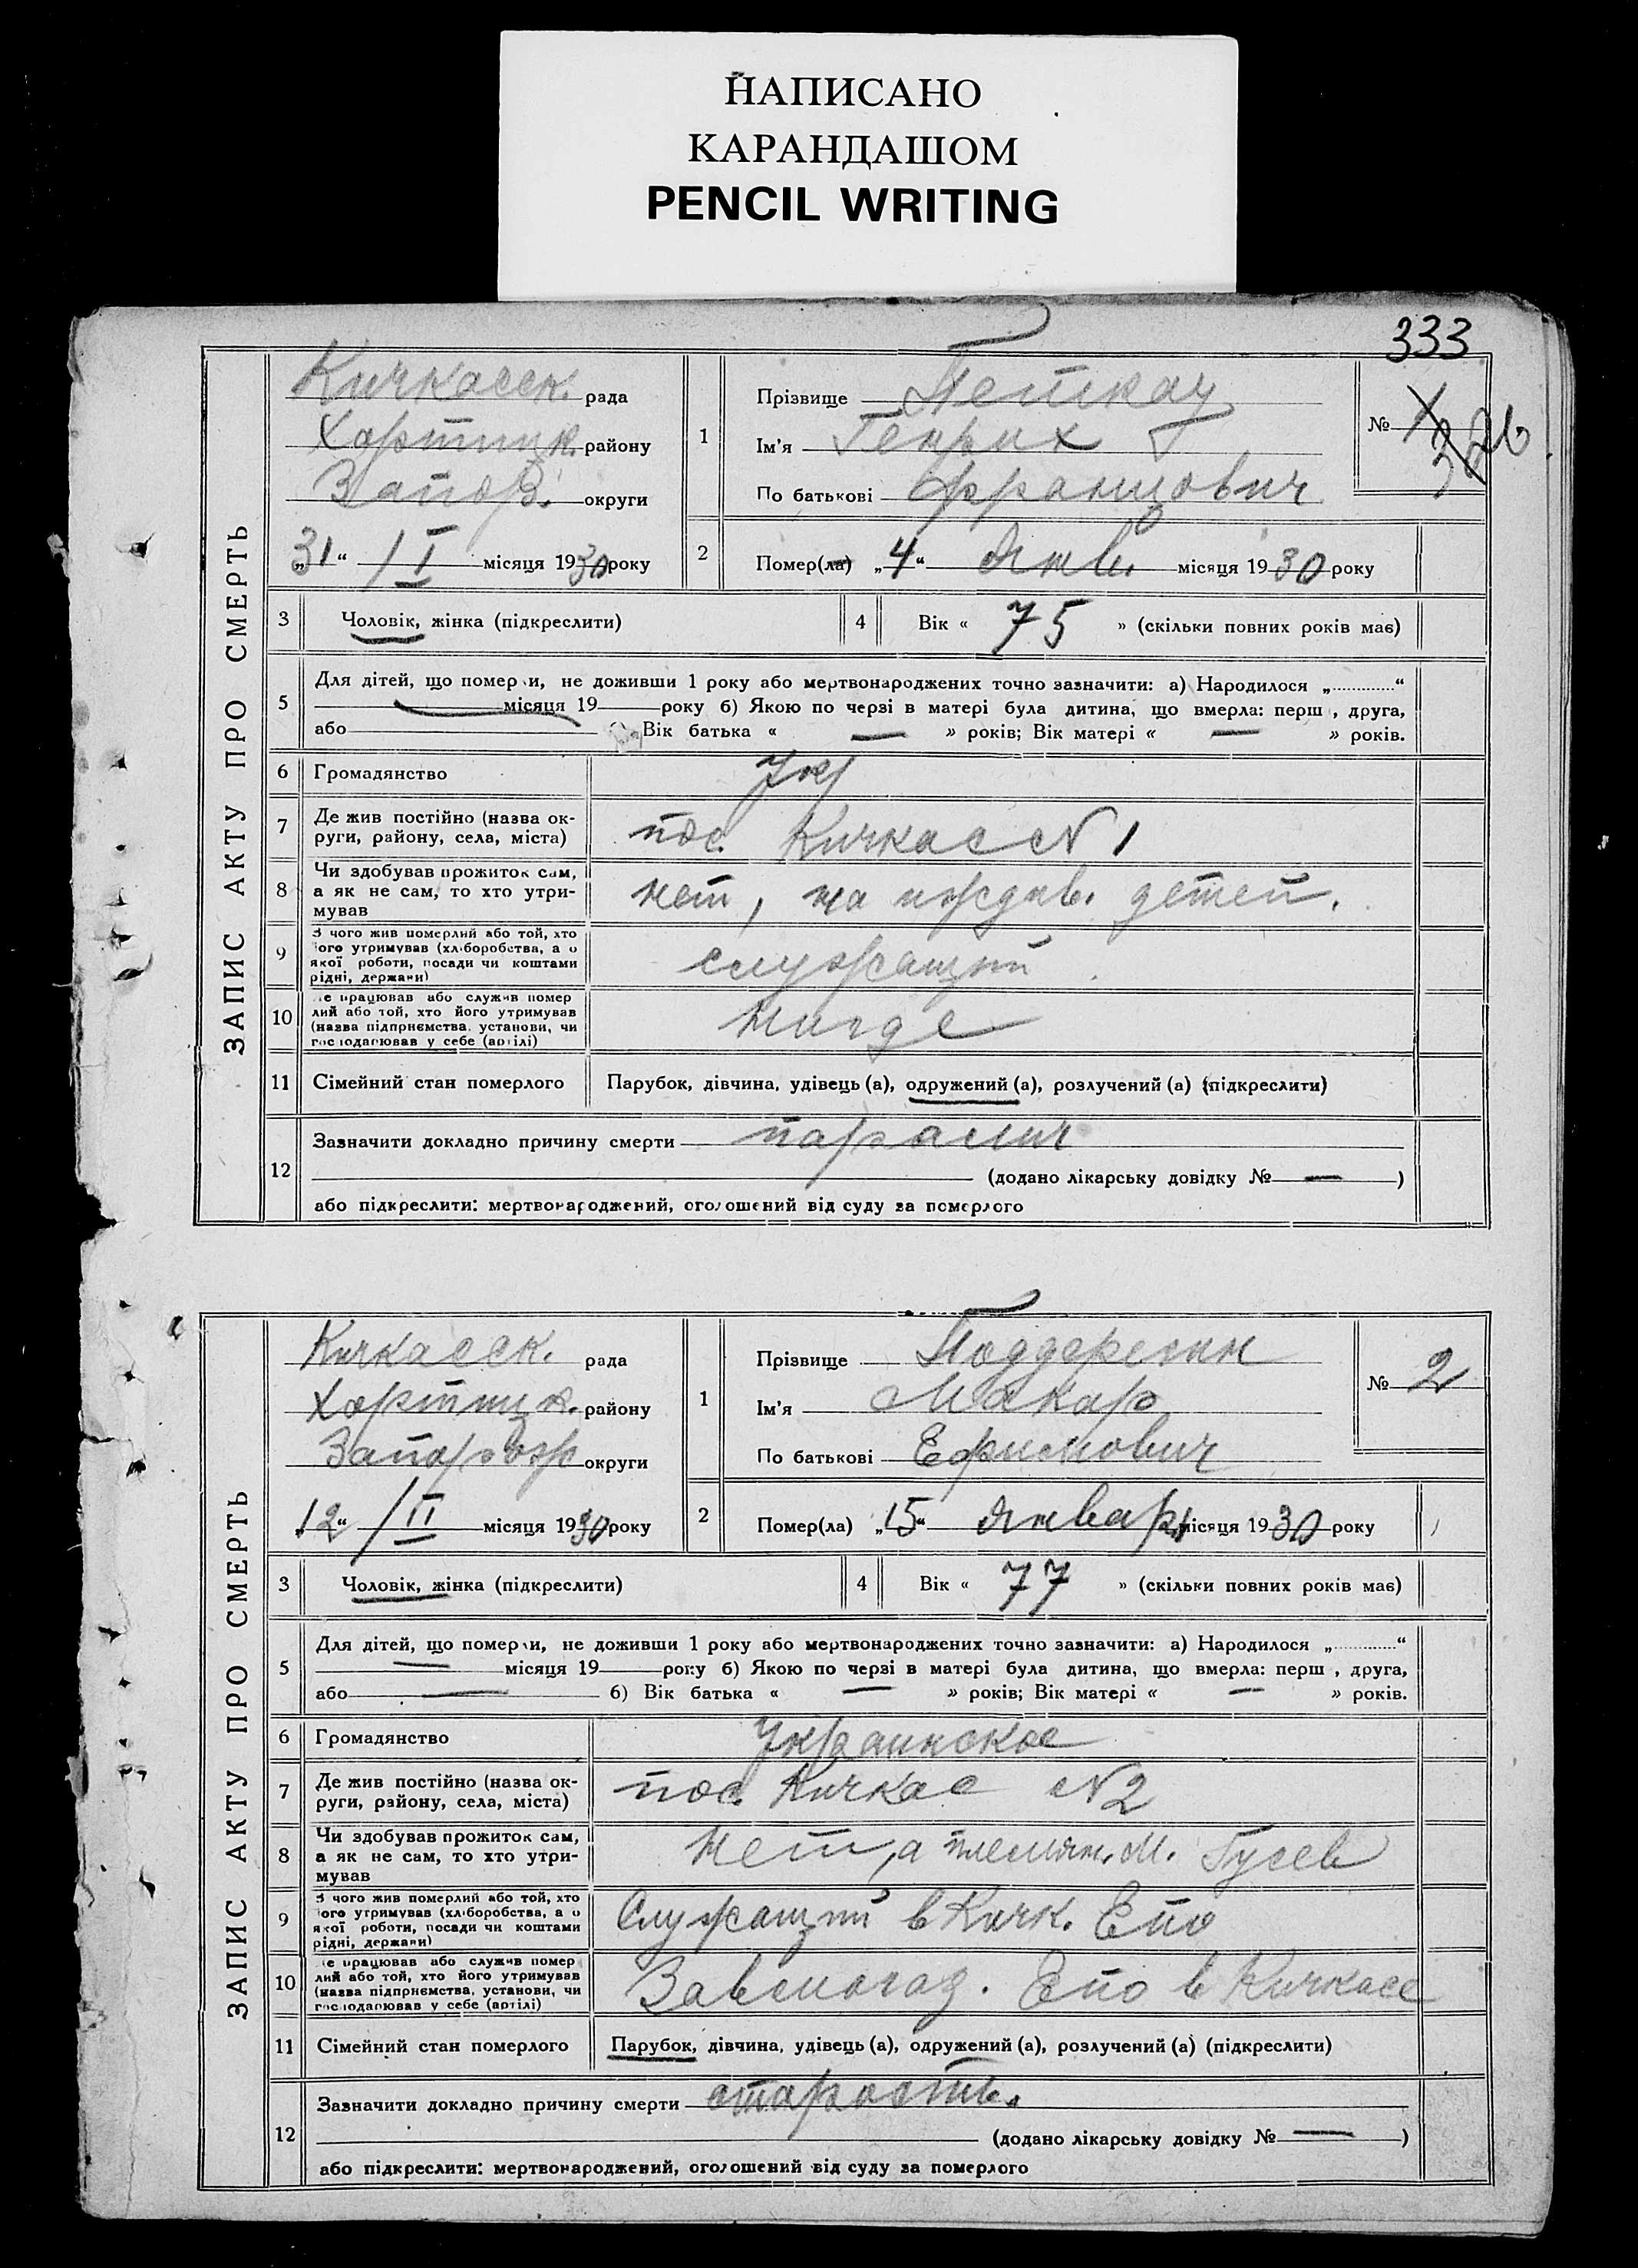 НАПИСАНО
КАРАНДАШОМ
PENCIL WRITING
333
ЗАПИС АКТУ ПРО СМЕРТЬ
Кичкасск. рада
Хортицк. району
Запор. округи
„31“ / I місяця 1930 року
1 Прізвище Петкау
Ім'я Генрих
По батькові Францович
№ 1
326
2 Помер(ла) „4“ Янв. місяця 1930 року
3 Чоловік, жінка (підкреслити)
4 Вік « 75 » (скільки повних років має)
5 Для дітей, що померли, не доживши 1 року або мертвонароджених точно зазначити: а) Народилося „ “
місяця 19 року б) Якою по черзі в матері була дитина, що вмерла: перш , друга,
або Вік батька « — » років; Вік матері « — » років.
6 Громадянство Укр
7 Де жив постійно (назва ок-
руги, району, села, міста) пос. Кичкас № 1
8 Чи здобував прожиток сам,
а як не сам, то хто утри-
мував нет, на иждив. детей.
9 З чого жив померлий або той, хто
його утримував (хліборобства, а о
якої роботи, посади чи коштами
рідні, держави) служащий
10 Де працював або служив помер
лий або той, хто його утримував
(назва підприємства, установи, чи
господарював у себе (артілі) Нигде
11 Сімейний стан померлого Парубок, дівчина, удівець (а), одружений (а), розлучений (а) (підкреслити)
12 Зазначити докладно причину смерти паралич
(додано лікарську довідку № — )
або підкреслити: мертвонароджений, оголошений від суду за померлого
ЗАПИС АКТУ ПРО СМЕРТЬ
Кичкасск. рада
Хортицк. району
Запорож округи
„12“ / II місяця 1930 року
1 Прізвище
Ім'я Макар
По батькові Ефимович
№ 2
2 Помер(ла) „15“ Января місяця 1930 року
3 Чоловік, жінка (підкреслити)
4 Вік « 77 » (скільки повних років має)
5 Для дітей, що померли, не доживши 1 року або мертвонароджених точно зазначити: а) Народилося „ “
— місяця 19 року б) Якою по черзі в матері була дитина, що вмерла: перш , друга,
або — б) Вік батька « — » років; Вік матері « — » років.
6 Громадянство Украинское
7 Де жив постійно (назва ок-
руги, району, села, міста) пос. Кичкас № 2
8 Чи здобував прожиток сам,
а як не сам, то хто утри-
мував Нет, а племян. М. Гусев
9 З чого жив померлий або той, хто
його утримував (хліборобства, а о
якої роботи, посади чи коштами
рідні, держави) Служащий в Кичк. Епо
10 Де працював або служив помер
лий або той, хто його утримував
(назва підприємства, установи, чи
господарював у себе (артілі) Епо в Кичкасе
11 Сімейний стан померлого Парубок, дівчина, удівець (а), одружений (а), розлучений (а) (підкреслити)
12 Зазначити докладно причину смерти старость.
(додано лікарську довідку № — )
або підкреслити: мертвонароджений, оголошений від суду за померлого